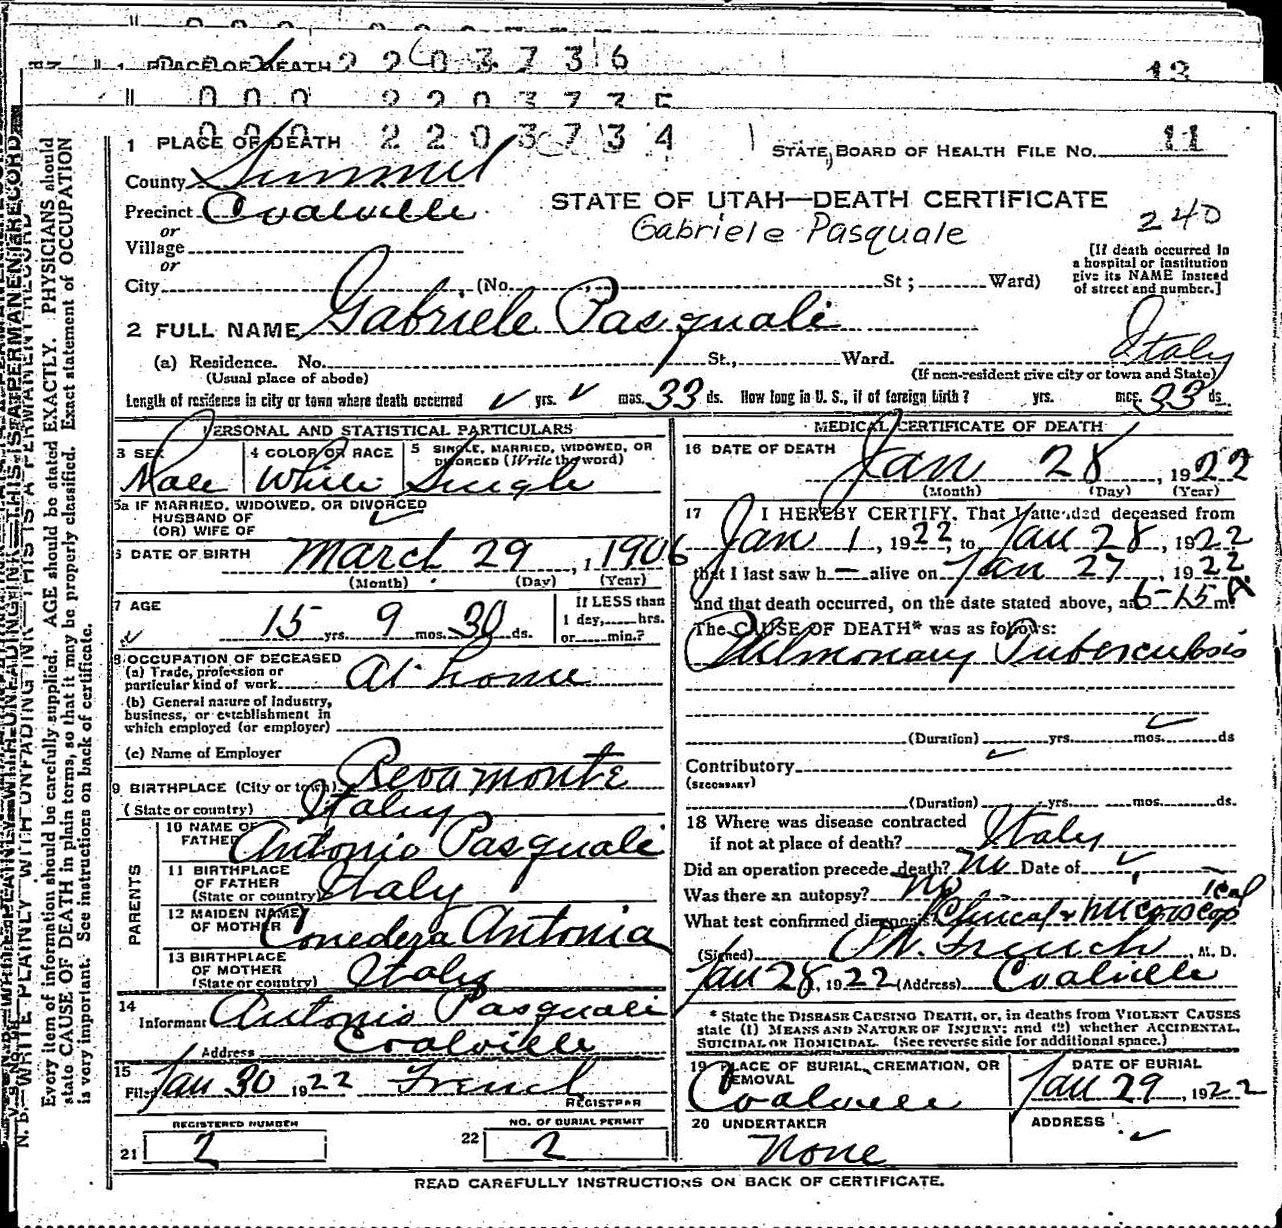 1 PLACE OF DEATH 2 2 0 3 7 3 6 13
0 0 0 2 2 0 3 7 3 5
0 0 0 2 2 0 3 7 3 4
1 PLACE OF DEATH STATE BOARD OF HEALTH FILE NO. 11
County Summit
Precinct Coalville
or
Village
or
City (No. St; Ward)
STATE OF UTAH—DEATH CERTIFICATE
Gabriele Pasquale
240
[If death occurred in
a hospital or institution
give its NAME instead
of street and number.]
2 FULL NAME Gabriele Pasquali
(a) Residence. No. St., Ward. Italy
(Usual place of abode) (If non-resident give city or town and State)
Length of residence in city or town where death occurred ✓ yrs. ✓ mos. 33 ds. How long in U. S., if of foreign birth? yrs. mos. 33 ds.
PERSONAL AND STATISTICAL PARTICULARS
3 SEX Male
4 COLOR OR RACE White
5 SINGLE, MARRIED, WIDOWED, OR
DIVORCED (Write the word) Single
5a IF MARRIED, WIDOWED, OR DIVORCED
HUSBAND OF
(OR) WIFE OF ✓
6 DATE OF BIRTH March 29, 1906
(Month) (Day) (Year)
7 AGE 15 yrs. 9 mos. 30 ds.
If LESS than
1 day, hrs.
or min.?
8 OCCUPATION OF DECEASED
(a) Trade, profession or
particular kind of work At home
(b) General nature of Industry,
business, or establishment in
which employed (or employer)
(c) Name of Employer
9 BIRTHPLACE (City or town) Revamonte
(State or country) Italy
PARENTS
10 NAME OF
FATHER Antonio Pasquali
11 BIRTHPLACE
OF FATHER
(State or country) Italy
12 MAIDEN NAME
OF MOTHER Conedera Antonia
13 BIRTHPLACE
OF MOTHER
(State or country) Italy
14
Informant Antonio Pasquali
Address Coalville
15
Filed Jan 30 1922 French
REGISTRAR
REGISTERED NUMBER
21 2
NO. OF BURIAL PERMIT
22 2
MEDICAL CERTIFICATE OF DEATH
16 DATE OF DEATH Jan 28, 1922
(Month) (Day) (Year)
17 I HEREBY CERTIFY, That I attended deceased from
Jan 1, 1922, to Jan 28, 1922
that I last saw h— alive on Jan 27, 1922
and that death occurred, on the date stated above, at 6-15 A m.
The CAUSE OF DEATH* was as follows:
Pulmonary Tuberculosis
(Duration) yrs. mos. ds
Contributory
(SECONDARY)
(Duration) yrs. mos. ds.
18 Where was disease contracted
if not at place of death? Italy
Did an operation precede death? No Date of ✓
Was there an autopsy? No
What test confirmed diagnosis? Clinical + microscopical
(Signed) French, M. D.
Jan 28, 1922 (Address) Coalville
* State the DISEASE CAUSING DEATH, or, in deaths from VIOLENT CAUSES
state (1) MEANS AND NATURE OF INJURY; and (2) whether ACCIDENTAL,
SUICIDAL OR HOMICIDAL. (See reverse side for additional space.)
19 PLACE OF BURIAL, CREMATION, OR
REMOVAL
Coalville
DATE OF BURIAL
Jan 29, 1922
20 UNDERTAKER
None
ADDRESS
✓
READ CAREFULLY INSTRUCTIONS ON BACK OF CERTIFICATE.
N. B.—WRITE PLAINLY WITH UNFADING INK—THIS IS A PERMANENT RECORD
Every item of information should be carefully supplied. AGE should be stated EXACTLY. PHYSICIANS should
state CAUSE OF DEATH in plain terms, so that it may be properly classified. Exact statement of OCCUPATION
is very important. See instructions on back of certificate.